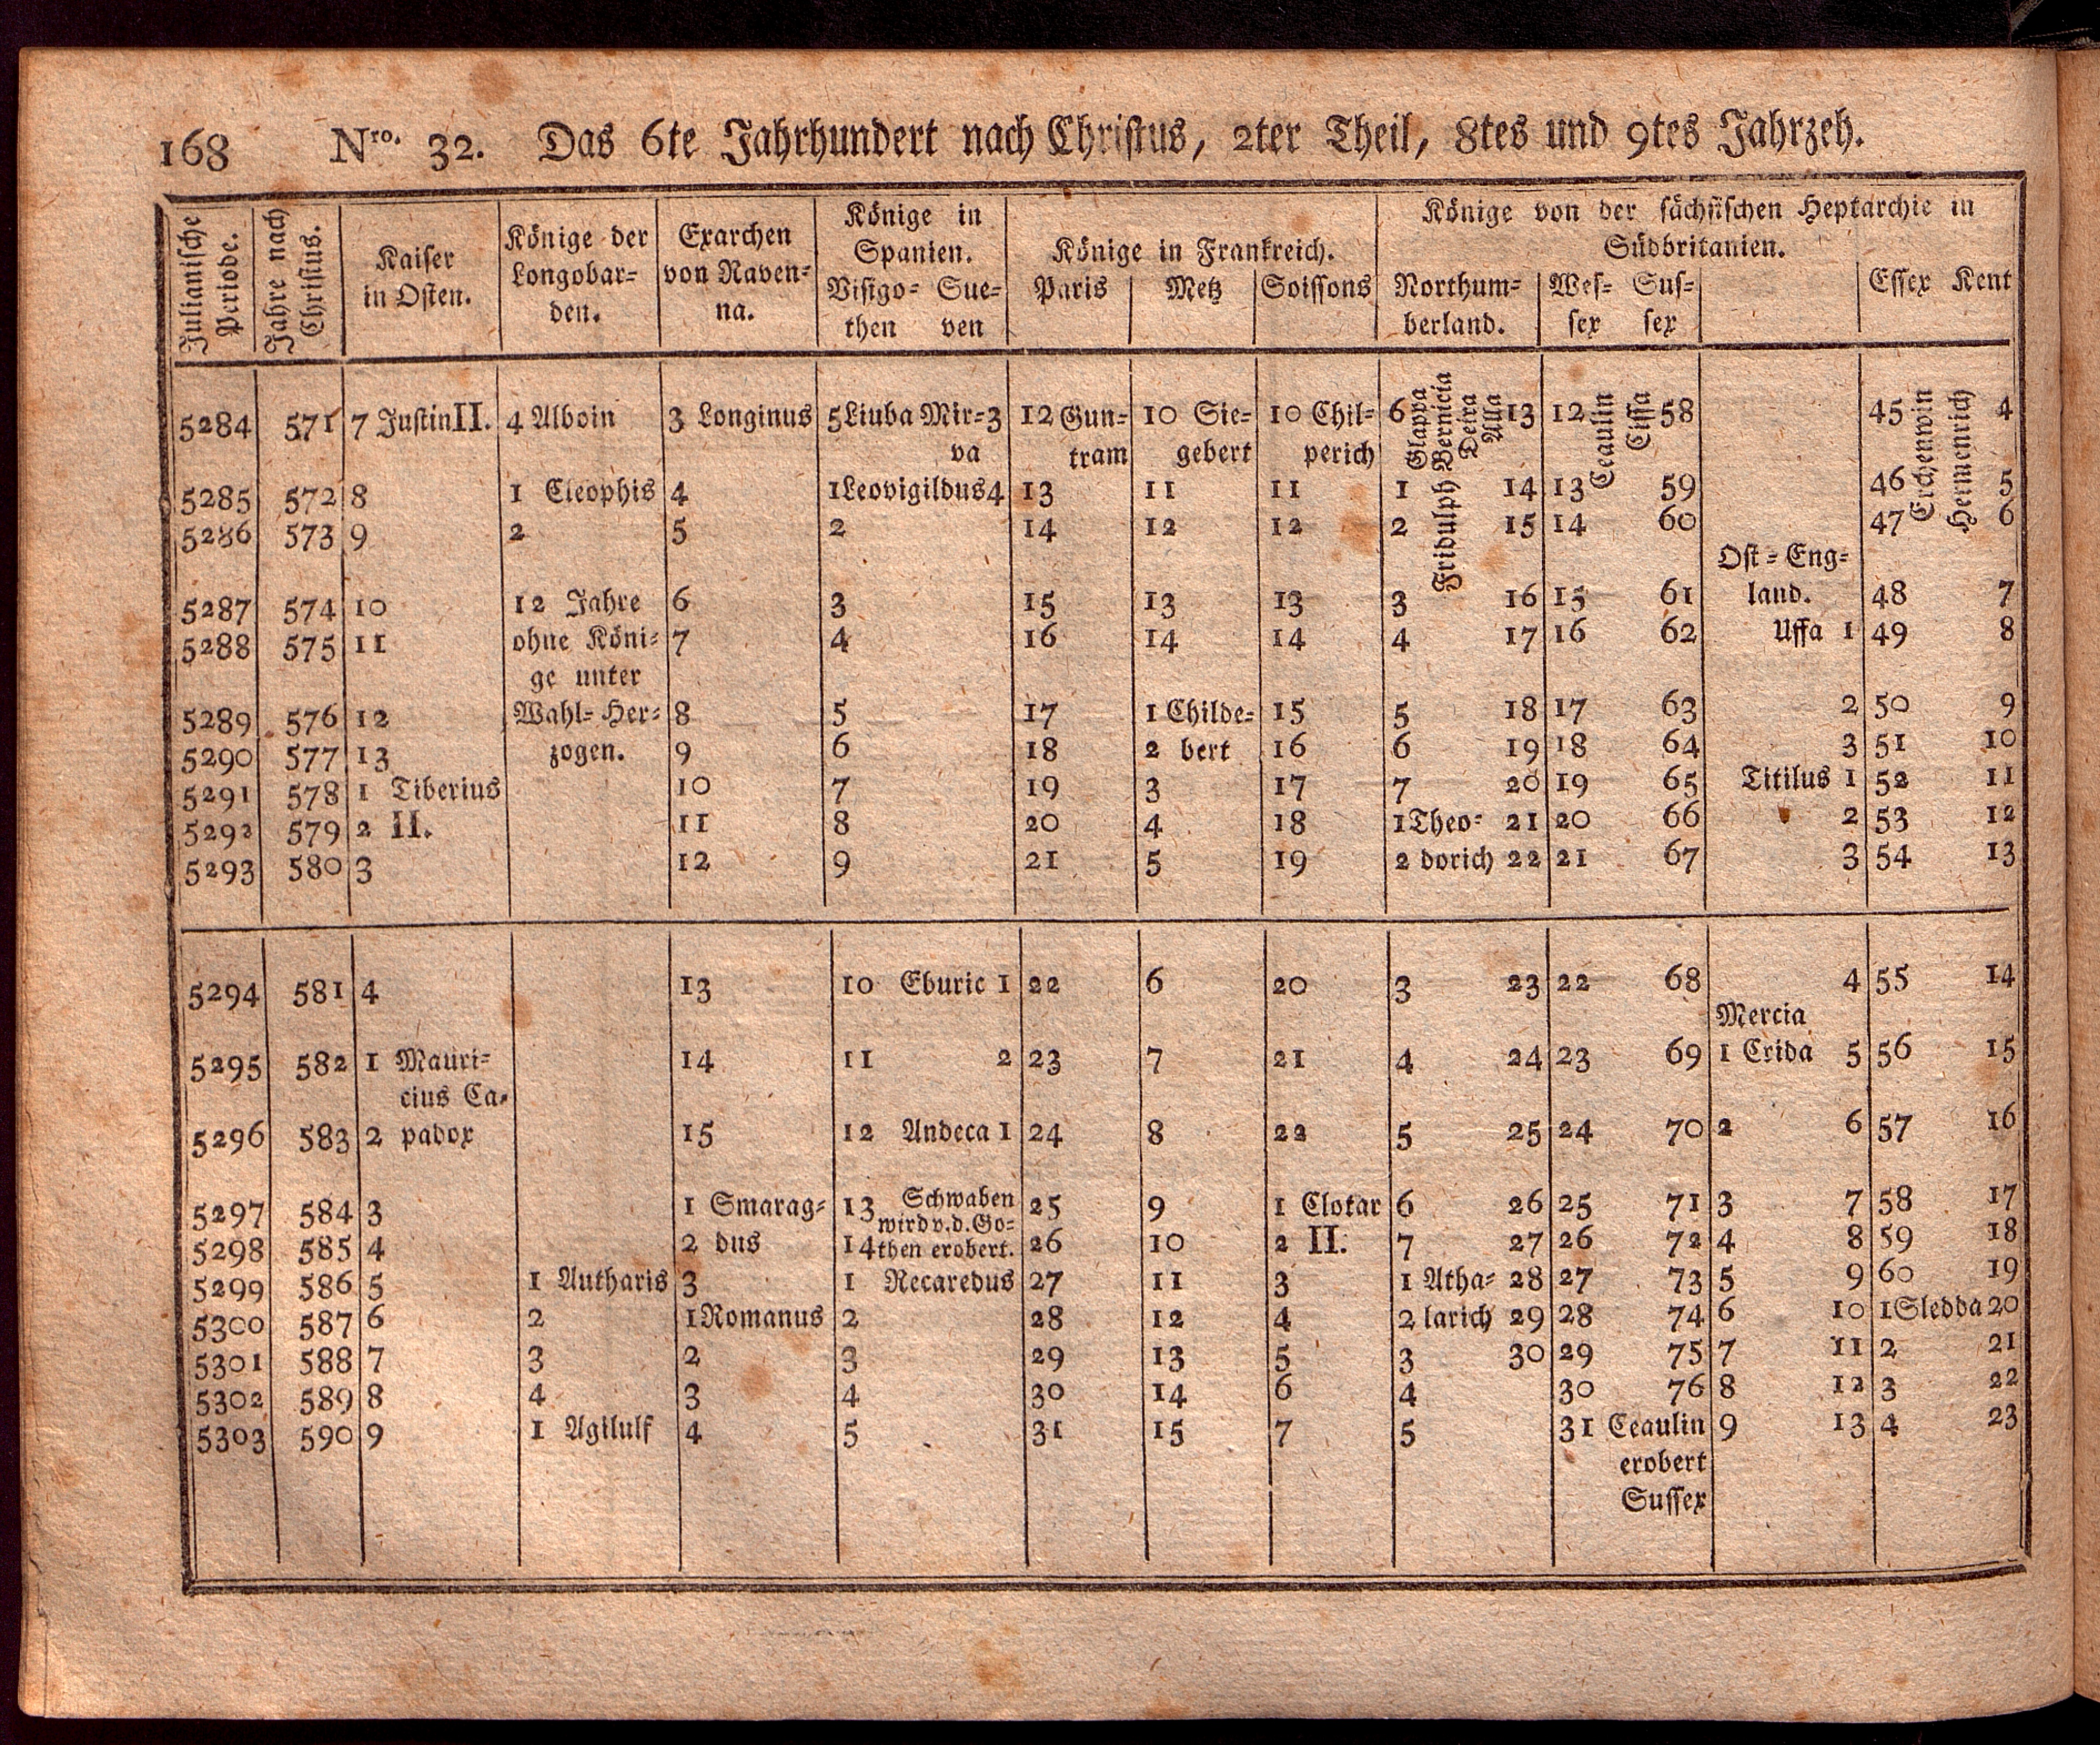 168 Nro. 32. Das 6te Jahrhundert nach Christus, 2ter Theil, 8tes und 9tes Jahrzeh.
Julianische Periode.
Jahre nach Christus.
Kaiser
in Osten.
Könige der
Longobar-
den.
Exarchen
von Raven-
na.
Könige in
Spanien.
Visigo- Sue-
then ven
Könige in Frankreich.
Paris Metz Soissons
Könige von der sächsischen Heptarchie in
Südbritanien.
Northum- Wes- Sus- Essex Kent
berland. sex sex
Glappa Bernicia Deira Alla Ceaulin Cissa Erchenwin Hermenrich
Fridulph
5284 571 7 Justin II. 4 Alboin 3 Longinus 5 Liuba Mir- 3 12 Gun- 10 Sie- 10 Chil- 6 13 12 58 45 4
va tram gebert perich
5285 572 8 1 Cleophis 4 1 Leovigildus 4 13 11 11 1 14 13 59 46 5
5286 573 9 2 5 2 14 12 12 2 15 14 60 47 6
Ost-Eng-
5287 574 10 12 Jahre 6 3 15 13 13 3 16 15 61 land. 48 7
5288 575 11 ohne Köni- 7 4 16 14 14 4 17 16 62 Uffa 1 49 8
ge unter
5289 576 12 Wahl-Her- 8 5 17 1 Childe- 15 5 18 17 63 2 50 9
5290 577 13 zogen. 9 6 18 2 bert 16 6 19 18 64 3 51 10
5291 578 1 Tiberius 10 7 19 3 17 7 20 19 65 Titilus 1 52 11
5292 579 2 II. 11 8 20 4 18 1 Theo- 21 20 66 2 53 12
5293 580 3 12 9 21 5 19 2 dorich 22 21 67 3 54 13
5294 581 4 13 10 Eburic 1 22 6 20 3 23 22 68 4 55 14
Mercia
5295 582 1 Mauri- 14 11 2 23 7 21 4 24 23 69 1 Crida 5 56 15
cius Ca-
5296 583 2 padox 15 12 Andeca 1 24 8 22 5 25 24 70 2 6 57 16
5297 584 3 1 Smarag- 13 Schwaben 25 9 1 Clotar 6 26 25 71 3 7 58 17
wird v. d. Go-
5298 585 4 2 dus 14 then erobert. 26 10 2 II. 7 27 26 72 4 8 59 18
5299 586 5 1 Autharis 3 1 Recaredus 27 11 3 1 Atha- 28 27 73 5 9 60 19
5300 587 6 2 1 Romanus 2 28 12 4 2 larich 29 28 74 6 10 1 Sledda 20
5301 588 7 3 2 3 29 13 5 3 30 29 75 7 11 2 21
5302 589 8 4 3 4 30 14 6 4 30 76 8 12 3 22
5303 590 9 1 Agilulf 4 5 31 15 7 5 31 Ceaulin 9 13 4 23
erobert
Sussex